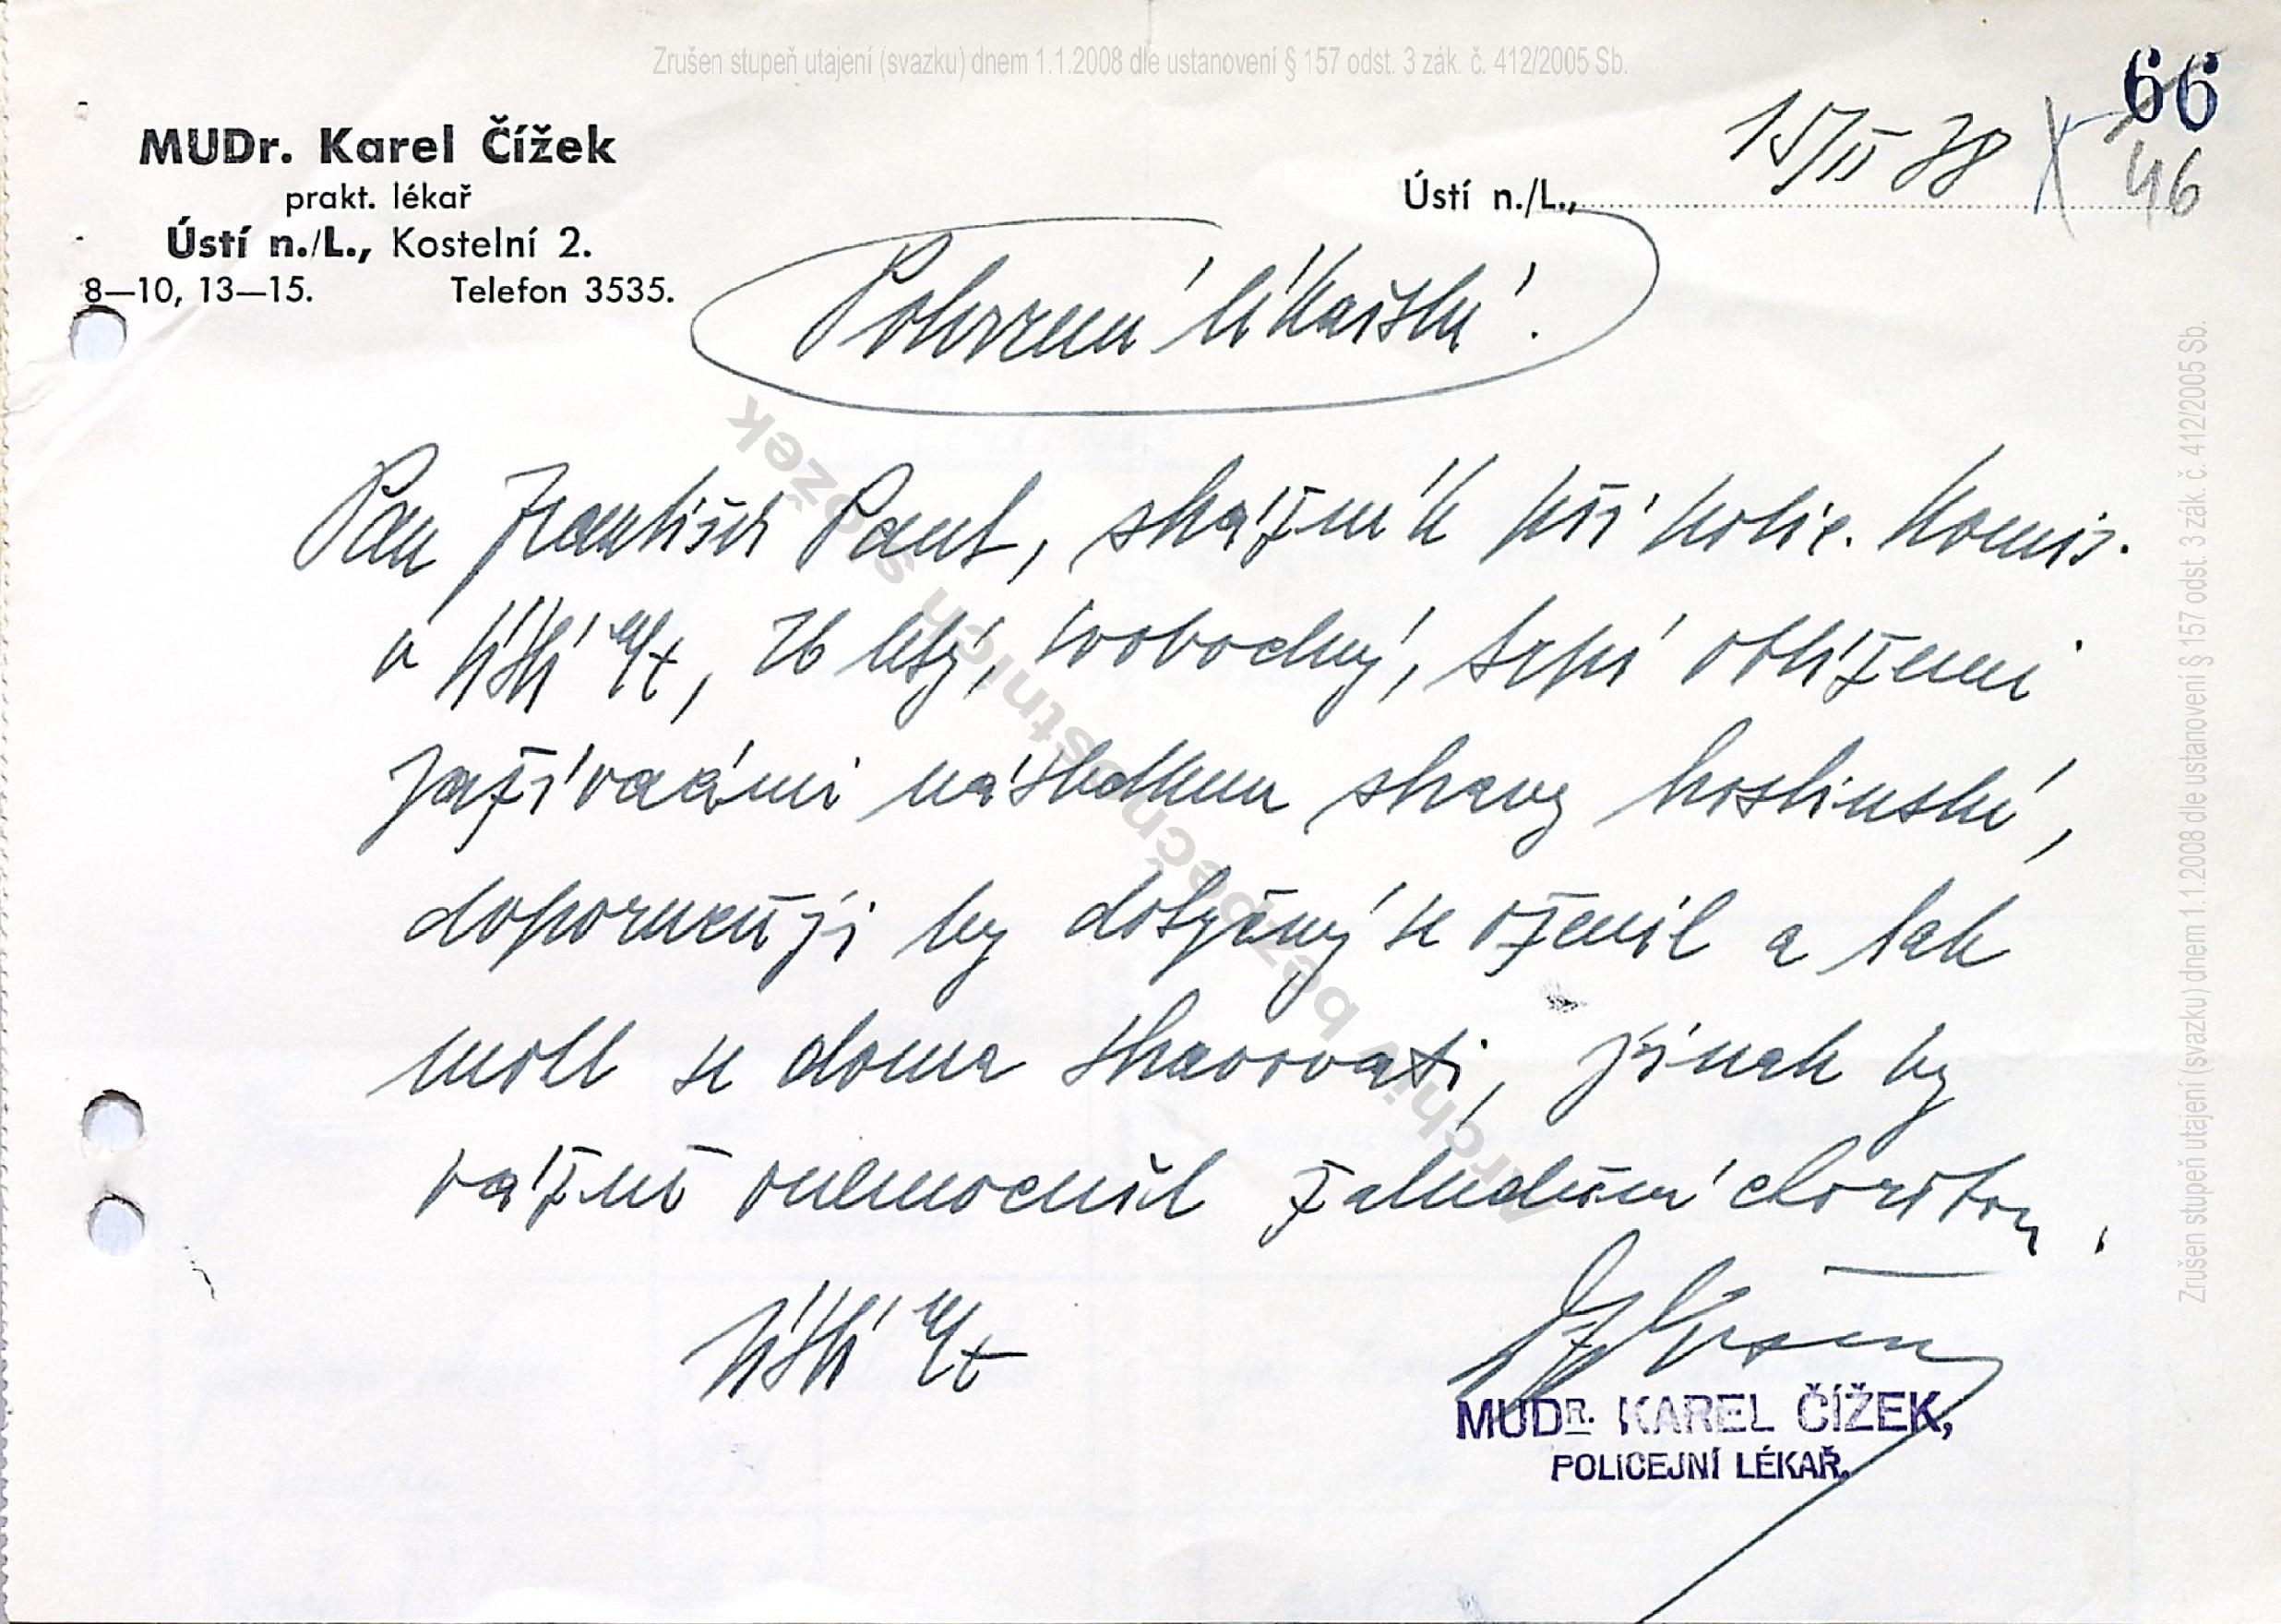 Zrušen stupeň utajení (svazku) dnem 1.1.2008 dle ustanovení § 157 odst. 3 zák. č. 412/2005 Sb.
66
46
MUDr. Karel Čížek
prakt. lékař
Ústí n./L., Kostelní 2.
8—10, 13—15. Telefon 3535.
Ústí n./L., 15/II 38
Potvrzení lékařské.
Pan František Paul, strážník při polic. komis.
v Ústí n/L, 26 letý, svobodný, trpí obtížemi
zažívacími následkem stravy hostinské,
doporučuji by dotyčný se oženil a tak
mohl se doma stravovati, jinak by
vážně onemocněl žaludeční chorobou.
Ústí n/L
MUDR. KAREL ČÍŽEK,
POLICEJNÍ LÉKAŘ.
Archiv bezpečnostních složek
Zrušen stupeň utajení (svazku) dnem 1.1.2008 dle ustanovení § 157 odst. 3 zák. č. 412/2005 Sb.